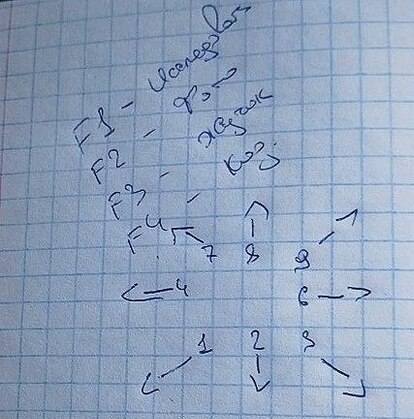 F1 -
F2 - Фото
F3 - Жучок
F4 - Код
7 8 9
4 6
1 2 3